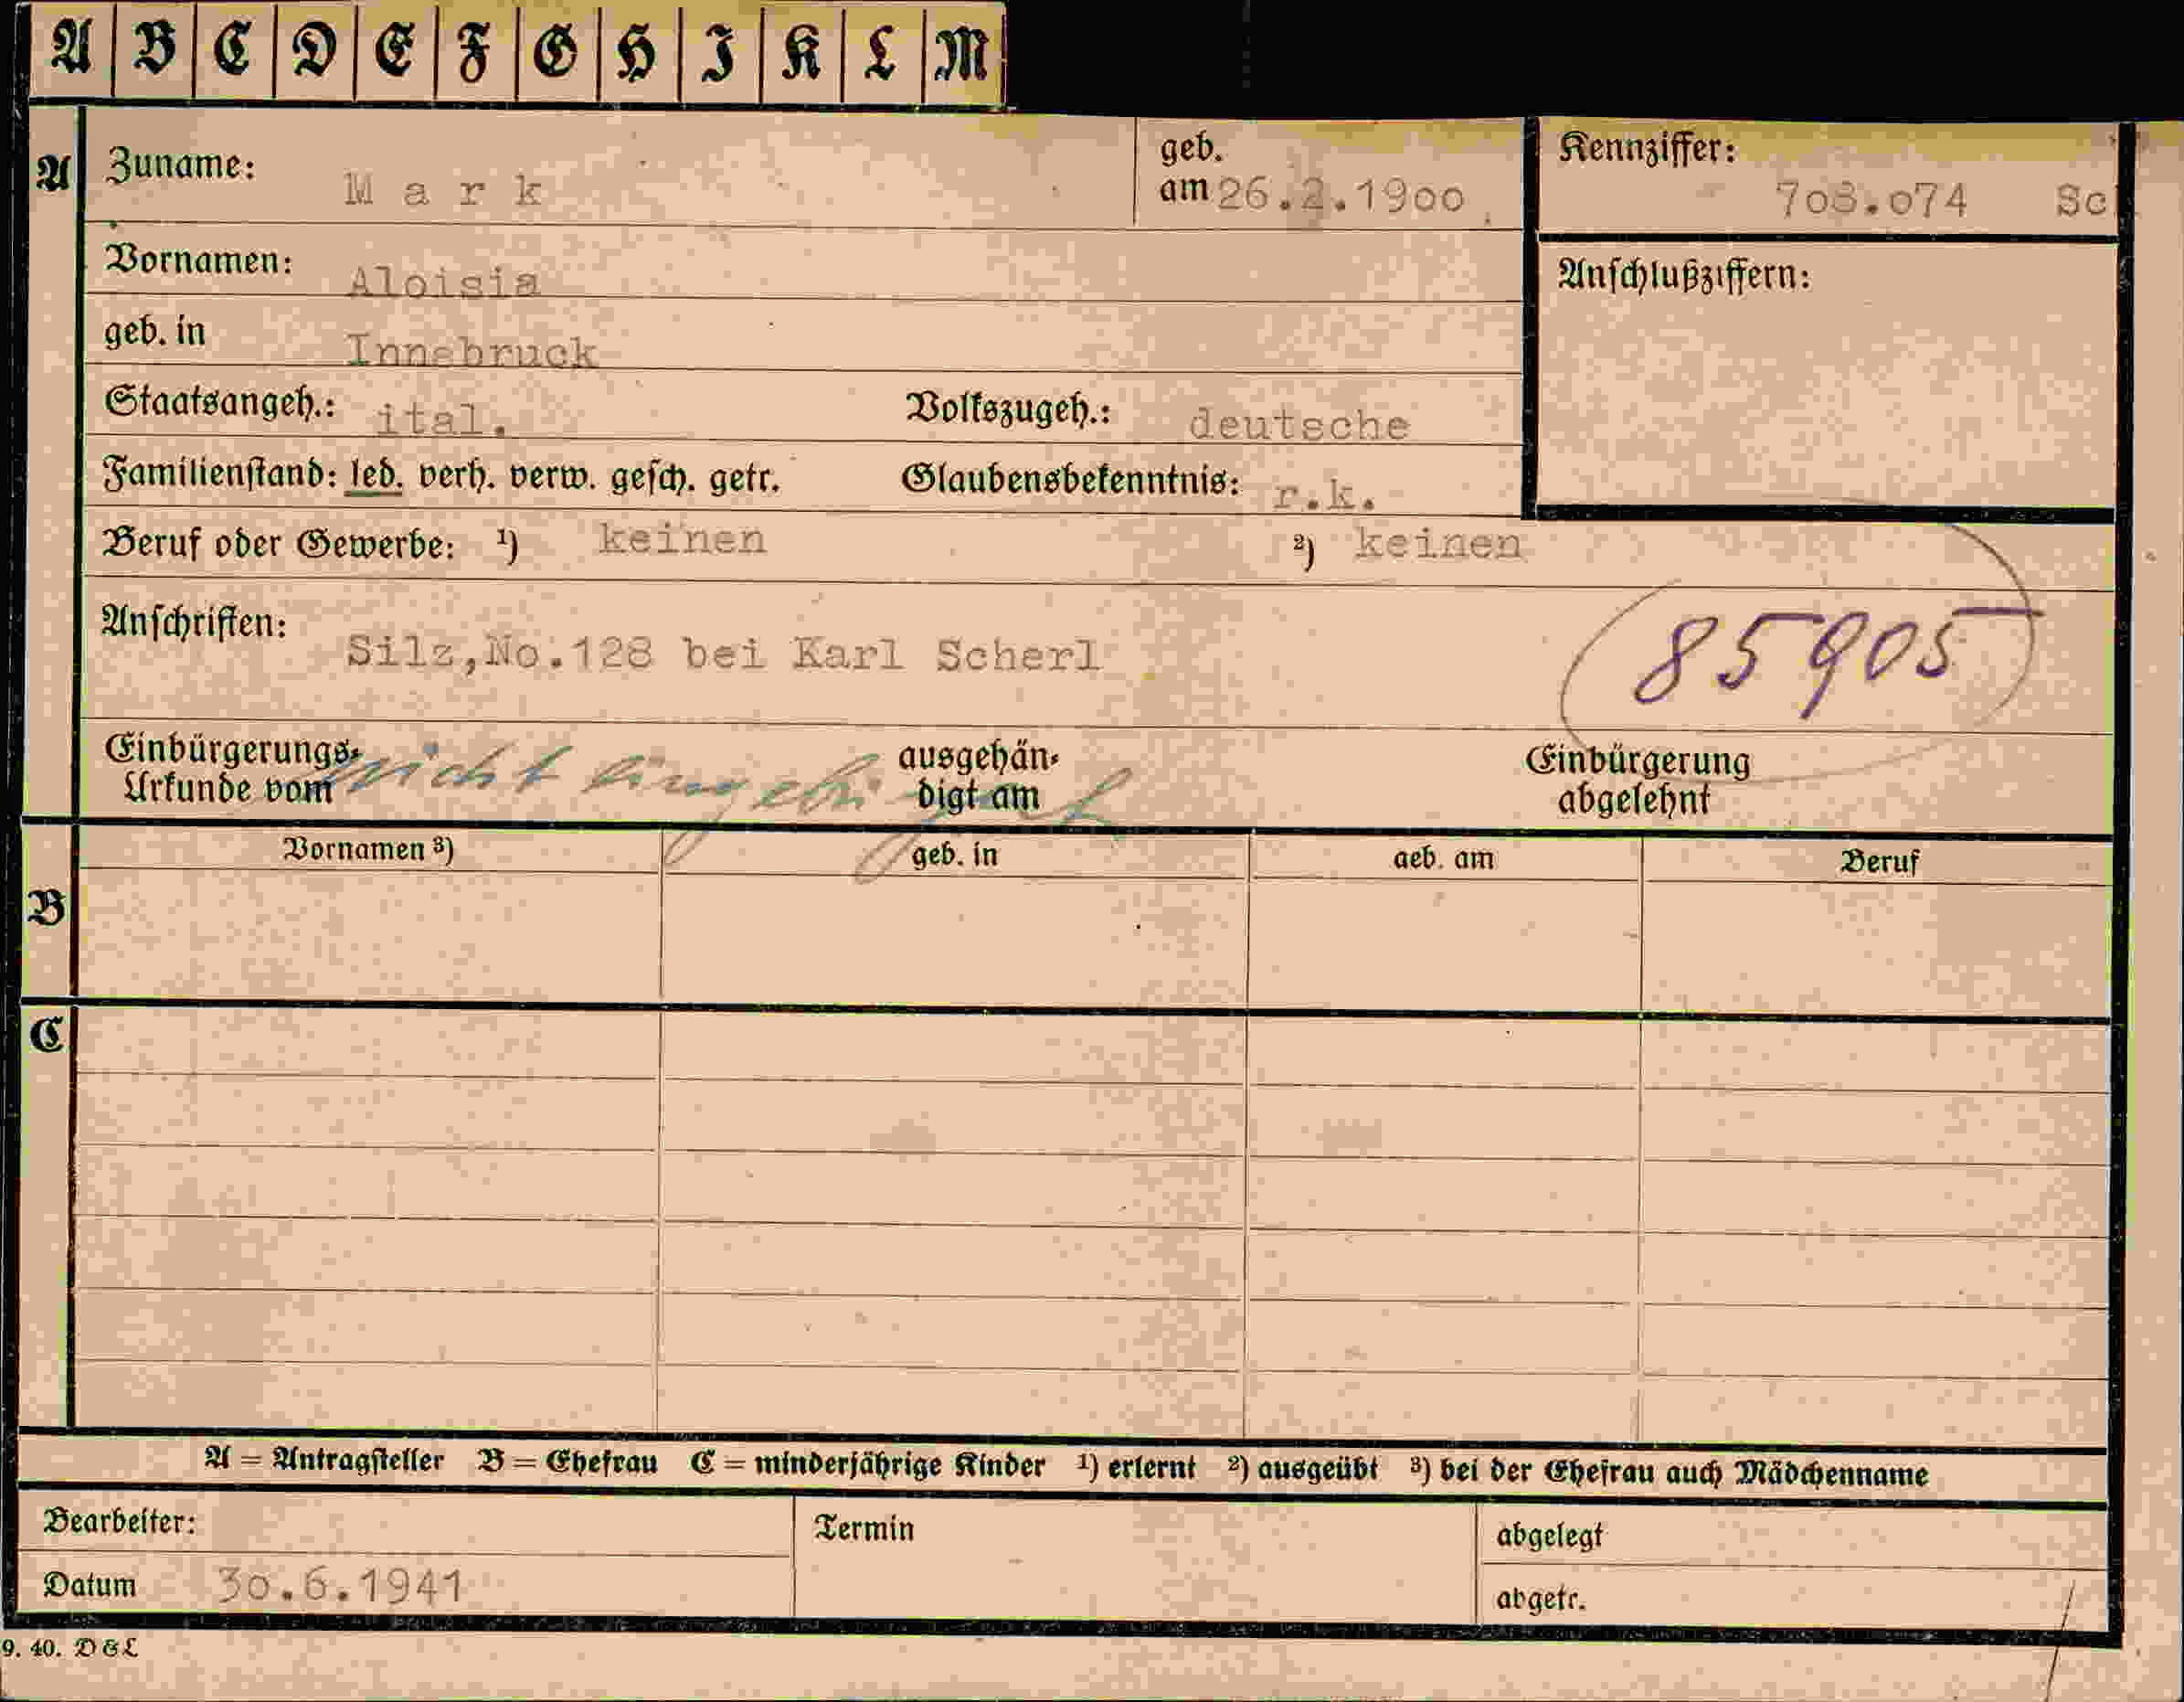 A B C D E F G H I K L M
A Zuname: Mark geb. am 26.2.1900 Kennziffer: 703.074 Sc
Vornamen: Aloisia Anschlußziffern:
geb. in Innsbruck
Staatsangeh.: ital. Volkszugeh.: deutsche
Familienstand: led. verh. verw. gesch. getr. Glaubensbekenntnis: r.k.
Beruf oder Gewerbe: ¹) keinen ²) keinen
Anschriften: Silz,No.128 bei Karl Scherl
85905
Einbürgerungs- Urkunde vom nicht eingebürgert ausgehän- digt am Einbürgerung abgelehnt
Vornamen ³) geb. in geb. am Beruf
B
C
A = Antragsteller B = Ehefrau C = minderjährige Kinder ¹) erlernt ²) ausgeübt ³) bei der Ehefrau auch Mädchenname
Bearbeiter: Termin abgelegt
Datum 30.6.1941 abgetr.
9. 40. D&L